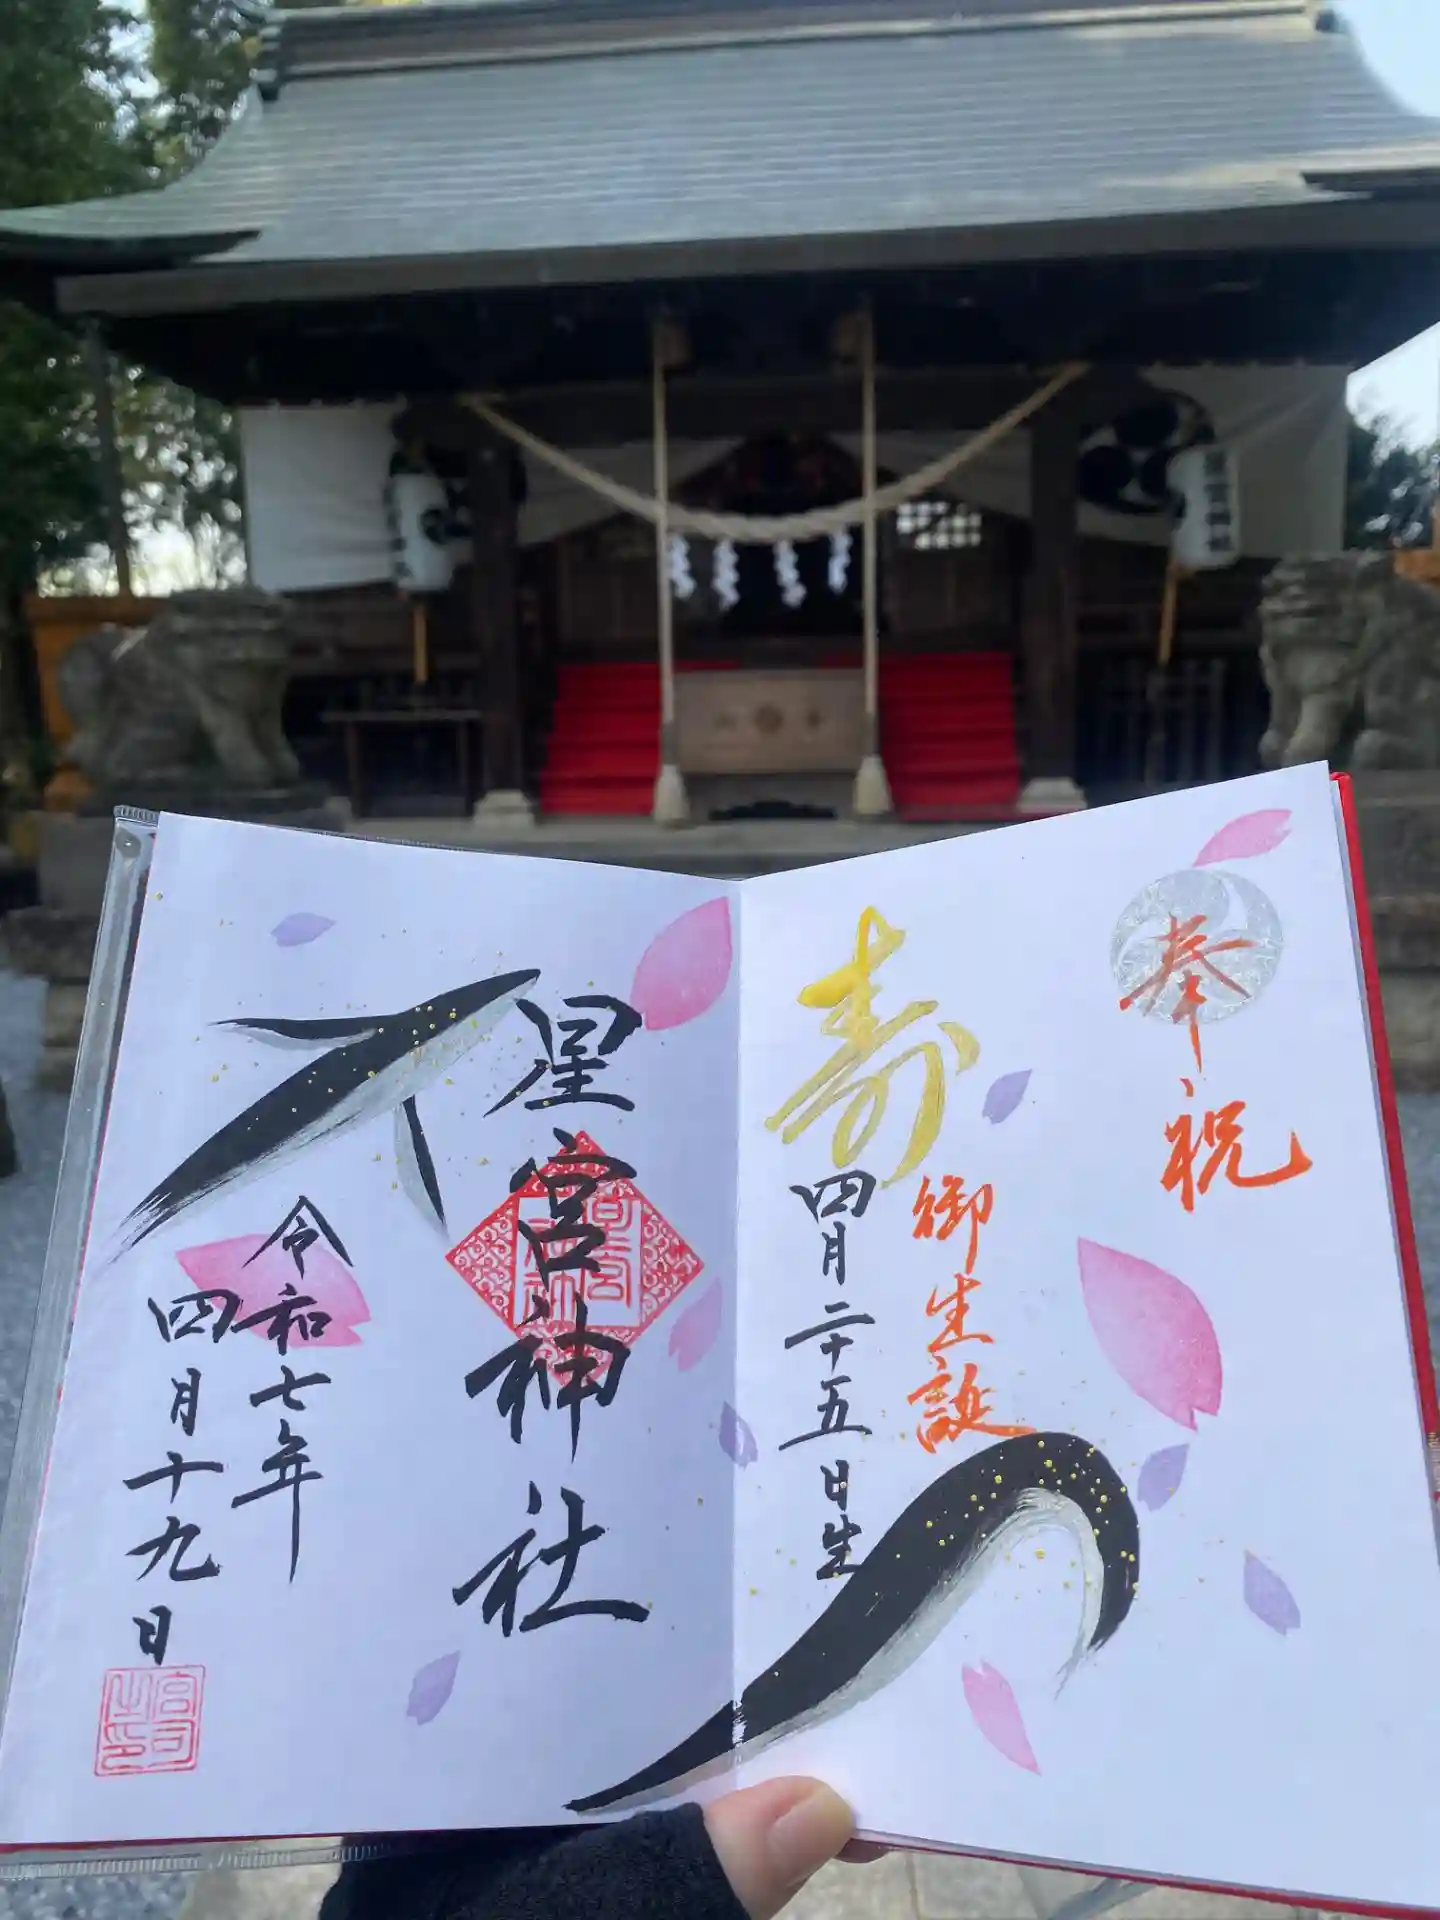 奉祝
御生誕
寿
四月二十五日生
星宮神社
令和七年
四月十九日
宮司之印